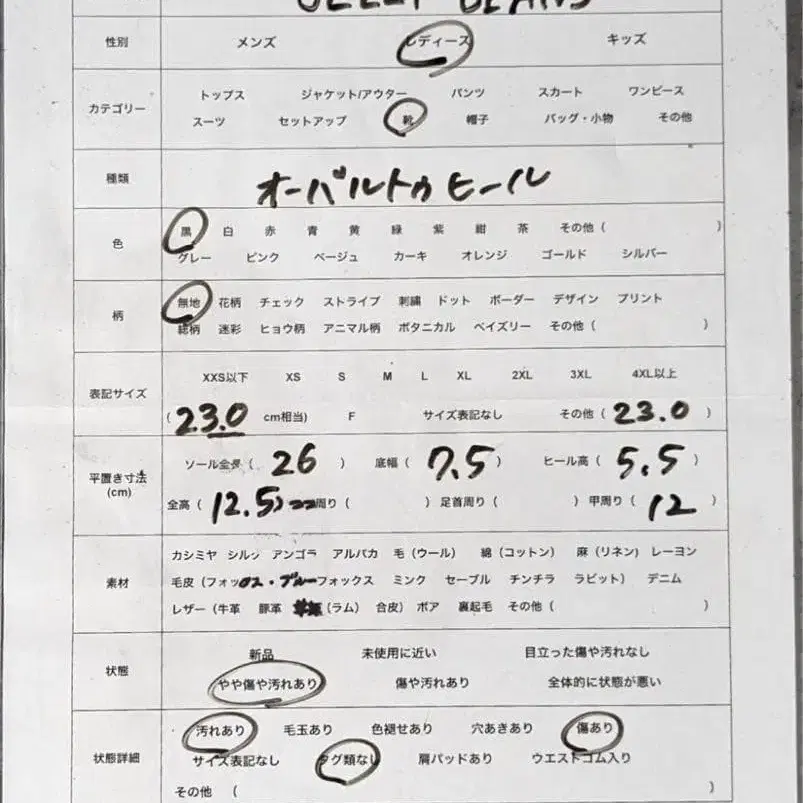 JELLY BEANS
性別 メンズ レディース キッズ
カテゴリー
トップス ジャケット/アウター パンツ スカート ワンピース
スーツ セットアップ 靴 帽子 バッグ・小物 その他
種類 オーバルトゥヒール
色
黒 白 赤 青 黄 緑 紫 紺 茶 その他 ( )
グレー ピンク ベージュ カーキ オレンジ ゴールド シルバー
柄
無地 花柄 チェック ストライプ 刺繍 ドット ボーダー デザイン プリント
総柄 迷彩 ヒョウ柄 アニマル柄 ボタニカル ペイズリー その他 ( )
表記サイズ
XXS以下 XS S M L XL 2XL 3XL 4XL以上
( 23.0 cm相当) F サイズ表記なし その他 ( 23.0 )
平置き寸法
(cm)
ソール全長 ( 26 ) 底幅 ( 7.5 ) ヒール高 ( 5.5 )
全高 ( 12.5 ) 周り ( ) 足首周り ( ) 甲周り ( 12 )
素材
カシミヤ シルク アンゴラ アルパカ 毛 (ウール) 綿 (コットン) 麻 (リネン) レーヨン
毛皮 (フォックス・ブルーフォックス ミンク セーブル チンチラ ラビット) デニム
レザー (牛革 豚革 (ラム) 合皮) ボア 裏起毛 その他 ( )
状態
新品 未使用に近い 目立った傷や汚れなし
やや傷や汚れあり 傷や汚れあり 全体的に状態が悪い
状態詳細
汚れあり 毛玉あり 色褪せあり 穴あきあり 傷あり
サイズ表記なし タグ類なし 肩パッドあり ウエストゴム入り
その他 ( )